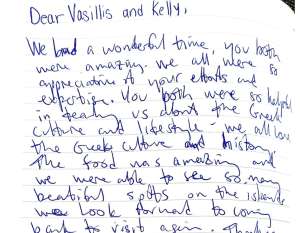 Dear Vasillis and Kelly,
We had a wonderful time, you both
were amazing. we all were so
appreciative of your efforts and
expertise. You both were so helpful
in teaching us about the Greek
culture and lifestyle - we all love
the Greek culture and history.
The food was amazing and
we were able to see so many
beautiful spots on the islands
we look forward to coming
back to visit again. Thank